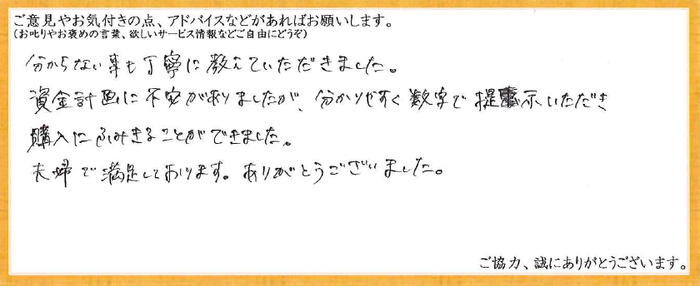 ご意見やお気付きの点、アドバイスなどがあればお願いします。
(お叱りやお褒めの言葉、欲しいサービス情報などご自由にどうぞ)
分からない事も丁寧に教えていただきました。
資金計画に不安がありましたが、分かりやすく数字で提示いただき
購入にふみきることができました。
夫婦で満足しております。ありがとうございました。
ご協力、誠にありがとうございます。